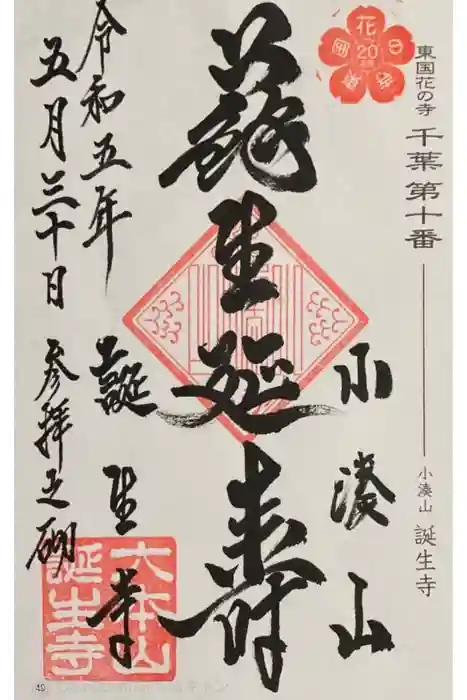 東国花の寺 千葉第十番
小湊山 誕生寺
花
20
小湊山
蘇生延寿
誕生寺
令和五年
五月三十日
参拝之砌
大本山
誕生寺
49